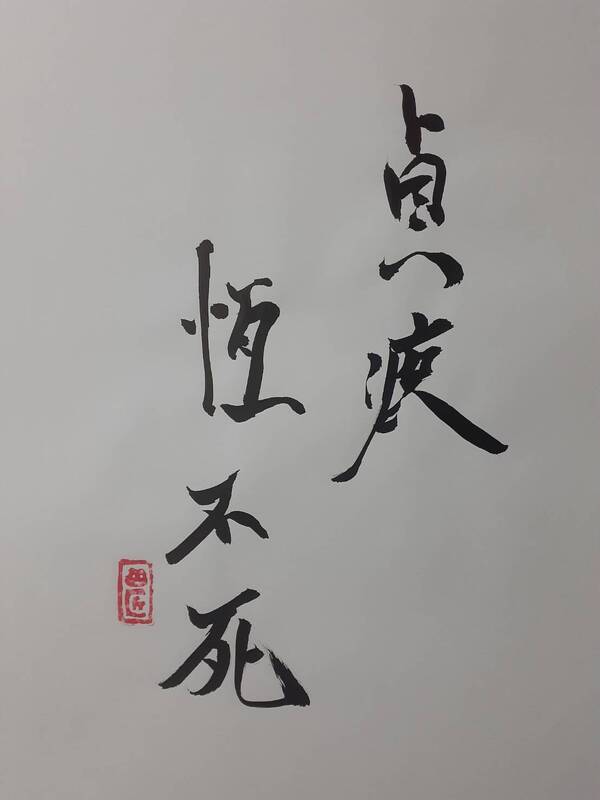 貞疾
恆不死